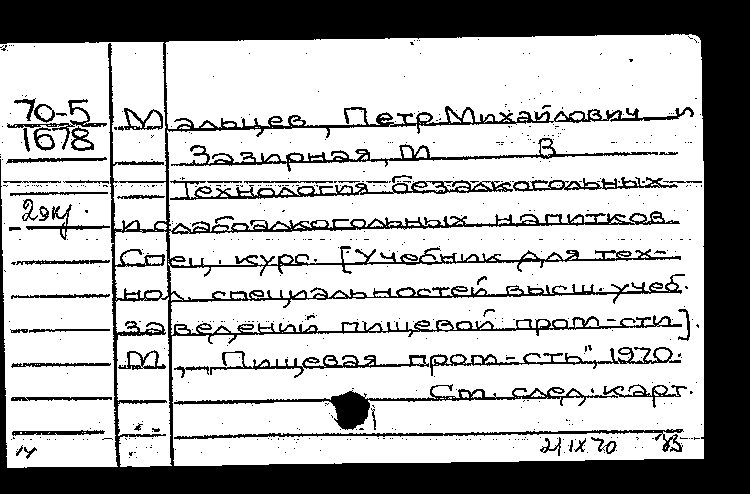 70-5
1678
Мальцев, Петр Михайлович и
Зазирная, М В
Технология безалкогольных
2 экз.
и слабоалкогольных напитков.
Спец. курс. [Учебник для тех-
нол. специальностей высш. учеб.
заведений пищевой пром-сти].
М, "Пищевая пром-сть", 1970.
См. след. карт.
14
21 IX 70